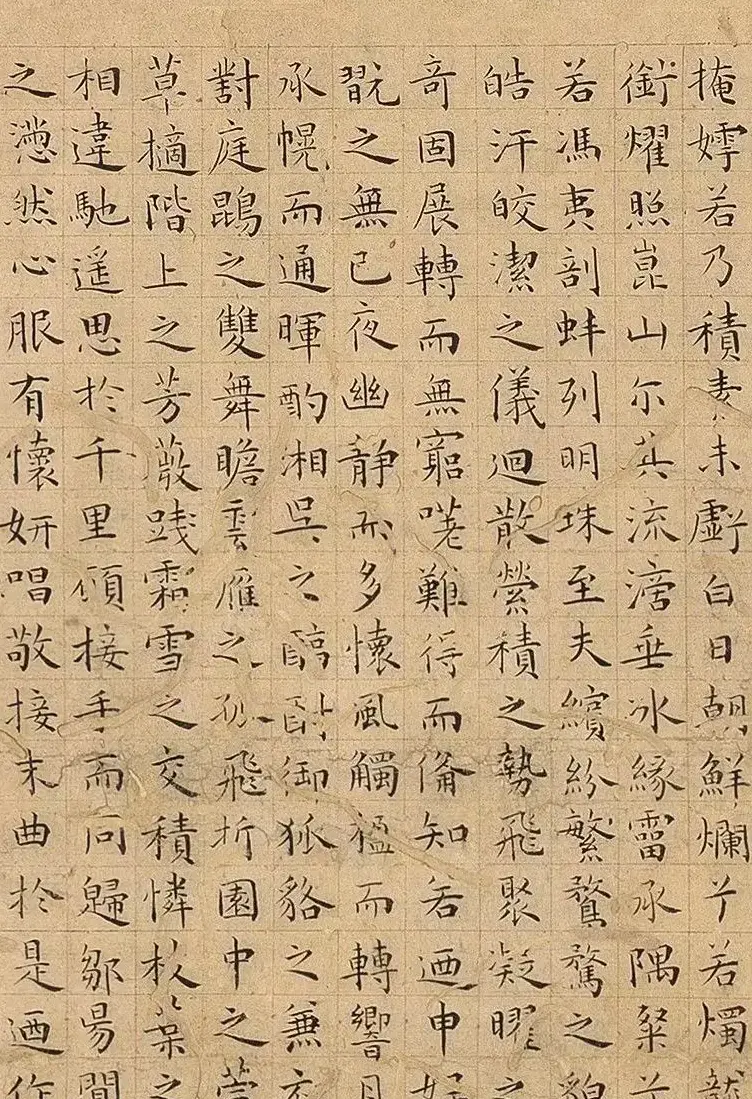 掩嫮若乃積素未虧白日朝鮮爛兮若燭龍
銜耀照崑山尔其流滴垂冰緣霤承隅粲兮
若馮夷剖蚌列明珠至夫繽紛繁騖驚之貌
皓汗皎潔之儀迴散縈積之勢飛聚凝曜之
奇固展轉而無窮嗟難得而俻知若迺申好
翫之無已夜幽靜而多懷風觸楹而轉響月
承幌而通暉酌湘吳之醇酎御狐貉之兼衣
對庭鵾之雙舞瞻雲雁之孤飛折園中之萱
草摘階上之芳薇践霜雪之交積憐枝葉之
相違馳遥思於千里願接手而同歸鄒陽聞
之懣然心服有懷妍唱敬接末曲於是迺作